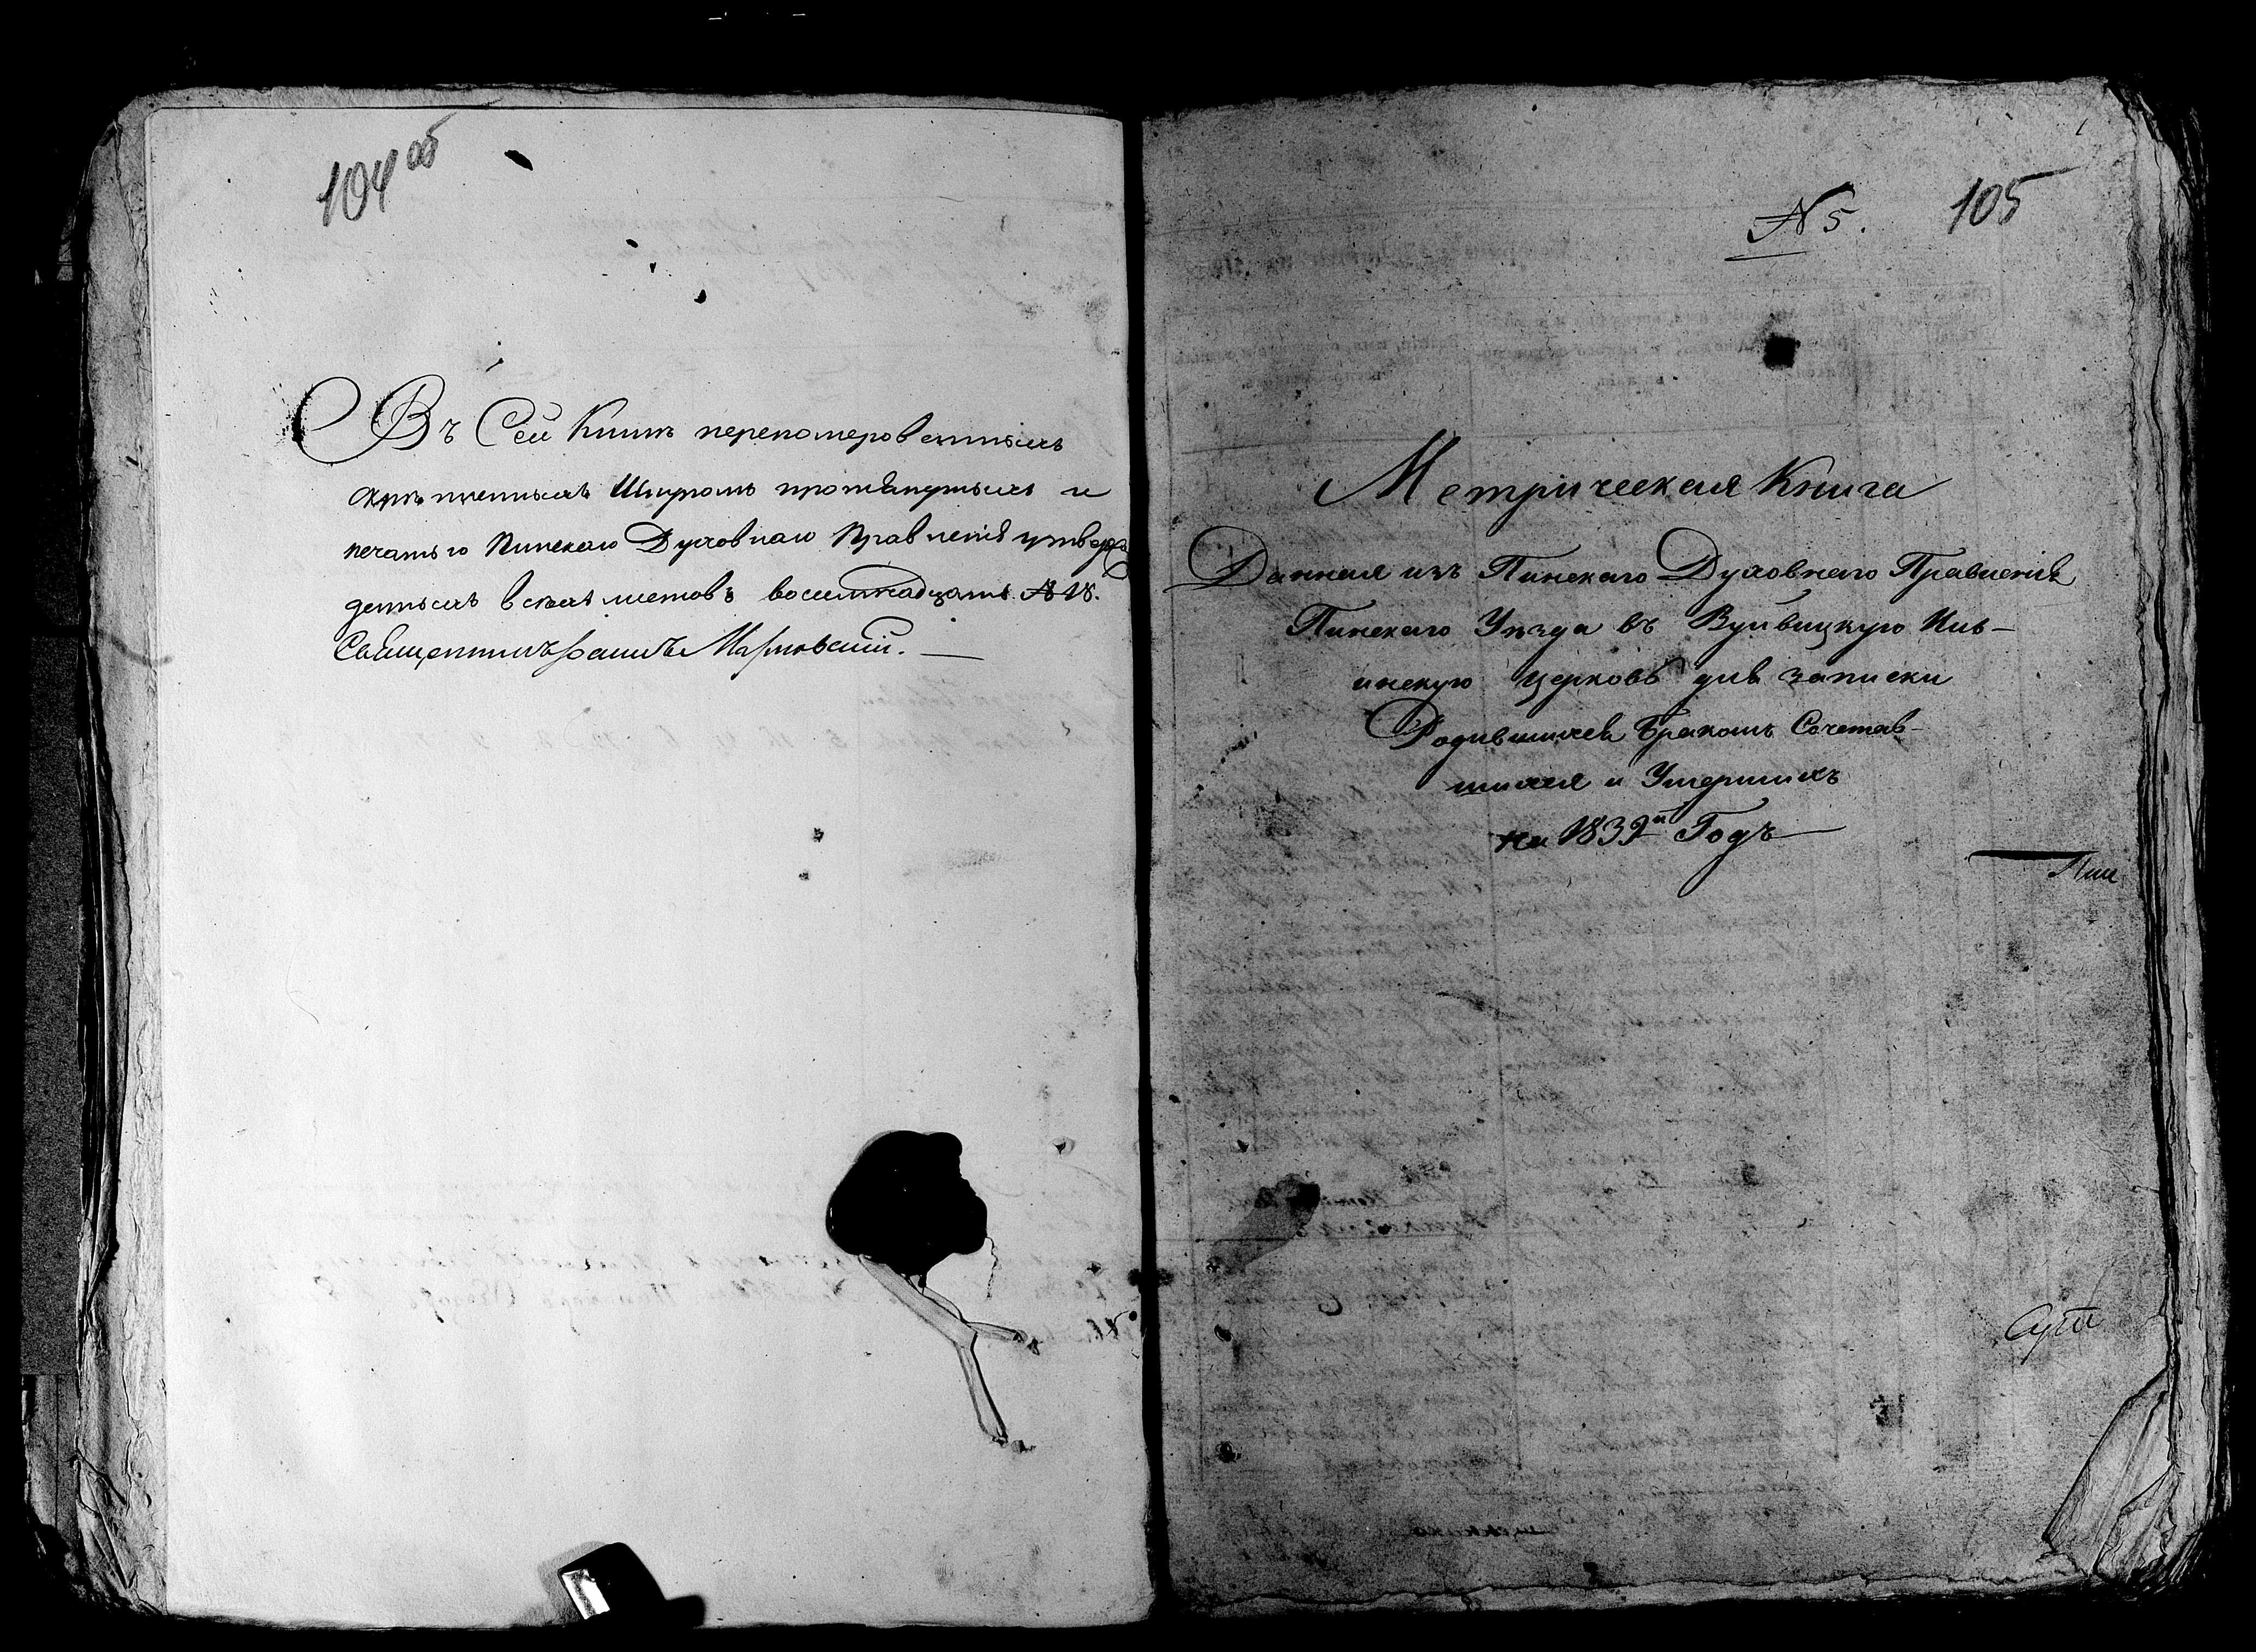 104 об
Въ Сей Книгѣ перепомерованныхъ
скрѣпленныхъ Шнуромъ протянутыхъ и
печатью Пинскаго Духовнаго Правленія утверж
денныхъ всѣхъ листовъ восемнадцать № 18.
Священникъ Марковскій.
№ 5. 105
Метрическая Книга
Данная изъ Пинскаго Духовнаго Правленія
Пинскаго Уѣзда въ Вуйвицкую Иль-
инскую церковь для записки
Родившихся Бракомъ Сочетав-
шихся и Умершихъ
на 1839й Годъ